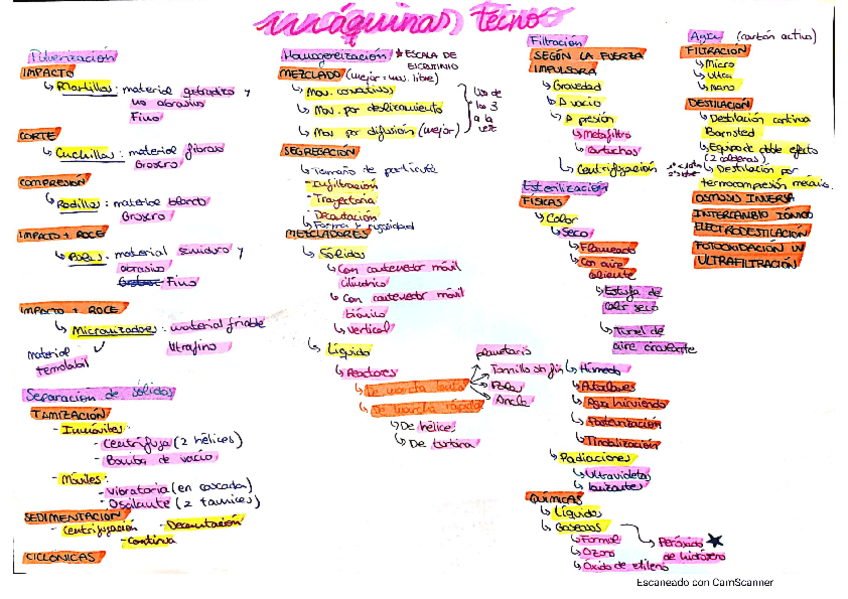 máquinas tecno
Pulverización
IMPACTO
↳ Martillos: material quebradizo y
no abrasivo
Fino
CORTE
↳ Cuchillas: material fibroso
Grosero
COMPRESIÓN
↳ Rodillos: material blando
Grosero
IMPACTO + ROCE
↳ Bolas: material semiduro y
abrasivo
Fino
IMPACTO + ROCE
↳ Micronizadores: material friable
Ultrafino
material
termolabil
Separación de sólidos
TAMIZACIÓN
- Inmóviles:
- Centrífuga (2 hélices)
- Bomba de vacío
- Móviles:
- Vibratoria (en cascada)
- Oscilante (2 tamices)
SEDIMENTACIÓN
- Centrifugación - Decantación
- Continua
CICLÓNICAS
Homogeneización ★ ESCALA DE
ESCRUTINIO
MEZCLADO (mejor: mov. libre)
↳ Mov. convectivos
↳ Mov. por deslizamiento
↳ Mov. por difusión (mejor)
los de
los 3
a la
vez
SEGREGACIÓN
↳ Tamaño de partícula
- Infiltración
- Trayectoria
- Decantación
↳ Forma y rugosidad
MEZCLADORES
↳ Sólidos
↳ Con contenedor móvil
cilíndrico
↳ Con contenedor móvil
bicónico
↳ Vertical
↳ Líquido
↳ Reactores
↳ De marcha lenta
planetario
Tornillo sin fin
Palas
Ancla
↳ De marcha rápida
↳ De hélice
↳ De turbina
Filtración
SEGÚN LA FUERZA
IMPULSORA
↳ Gravedad
↳ A vacío
↳ A presión
↳ Metafiltro
↳ Cartuchos
↳ Centrifugación
Esterilización
FÍSICAS
↳ Calor
↳ Seco
↳ Flameado
↳ Con aire
caliente
↳ Estufa de
calor seco
↳ Túnel de
aire circulante
↳ Húmedo
↳ Autoclaves
↳ Agua hirviendo
↳ Pasteurización
↳ Tindalización
↳ Radiaciones
↳ Ultravioletas
↳ Ionizantes
QUÍMICAS
↳ Líquido
↳ Gaseosos
↳ Formol
↳ Ozono
↳ Óxido de etileno
↳ Peróxido ★
de hidrógeno
Agua (carbón activo)
FILTRACIÓN
↳ Micro
↳ Ultra
↳ Nano
DESTILACIÓN
↳ Destilación continua
Barnsted
↳ Equipo de doble efecto
(2 calderas)
↳ Destilación por
termocompresión mecánica.
OSMOSIS INVERSA
INTERCAMBIO IÓNICO
ELECTRODESTILACIÓN
FOTOOXIDACIÓN UV
ULTRAFILTRACIÓN
Escaneado con CamScanner